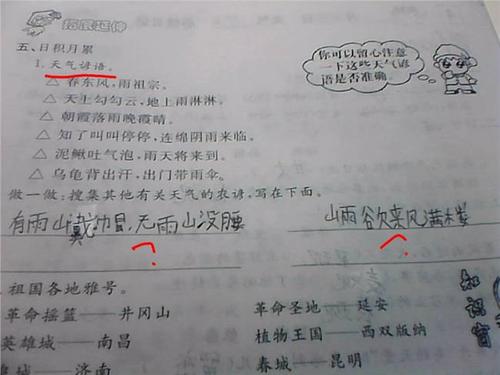 拓展延伸
五、日积月累
1.天气谚语。
你可以留心注意
一下这些天气谚
语是否准确。
△ 春东风,雨祖宗。
△ 天上勾勾云,地上雨淋淋。
△ 朝霞落雨晚霞晴。
△ 知了叫叫停停,连绵阴雨来临。
△ 泥鳅吐气泡,雨天将来到。
△ 乌龟背出汗,出门带雨伞。
做一做:搜集其他有关天气的农谚,写在下面。
有雨山戴帽,无雨山没腰 山雨欲来风满楼
?
祖国各地雅号。
革命摇篮——井冈山 革命圣地——延安
英雄城——南昌 植物王国——西双版纳
城——济南 春城——昆明
知识窗